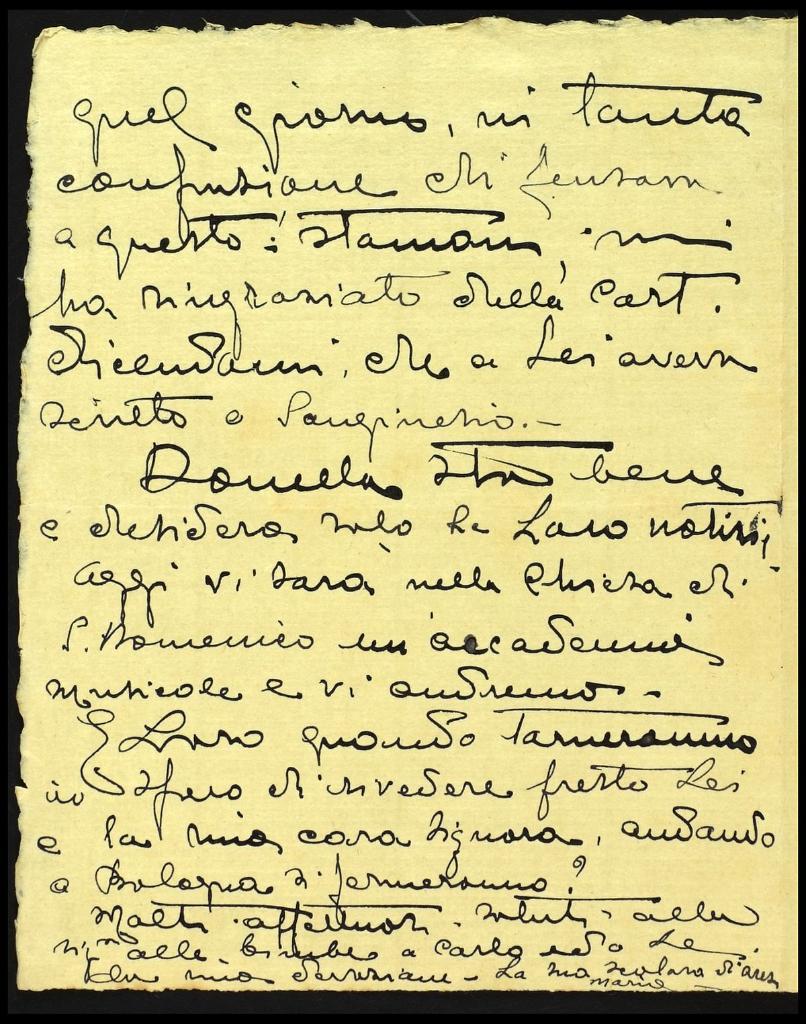 quel giorno, in tanta
confusione di pensare
a questo: stamani, mi
ha ringraziato della cart.
dicendomi, che a Lei aveva
scritto a Sanginesio. -
Domela sta bene
e desidera solo le Loro notizie,
Oggi vi sarà nella Chiesa di
S. Domenico un'accademia
musicale e vi andremo -
E Loro quando torneranno
io spero di rivedere presto Lei
e la mia cara Signora, andando
a Bologna si fermeranno?
Molti affettuosi saluti alla
sig.ra alle bimbe a Carlo ed a Le
la mia devozione - La sua scolara di
Maria